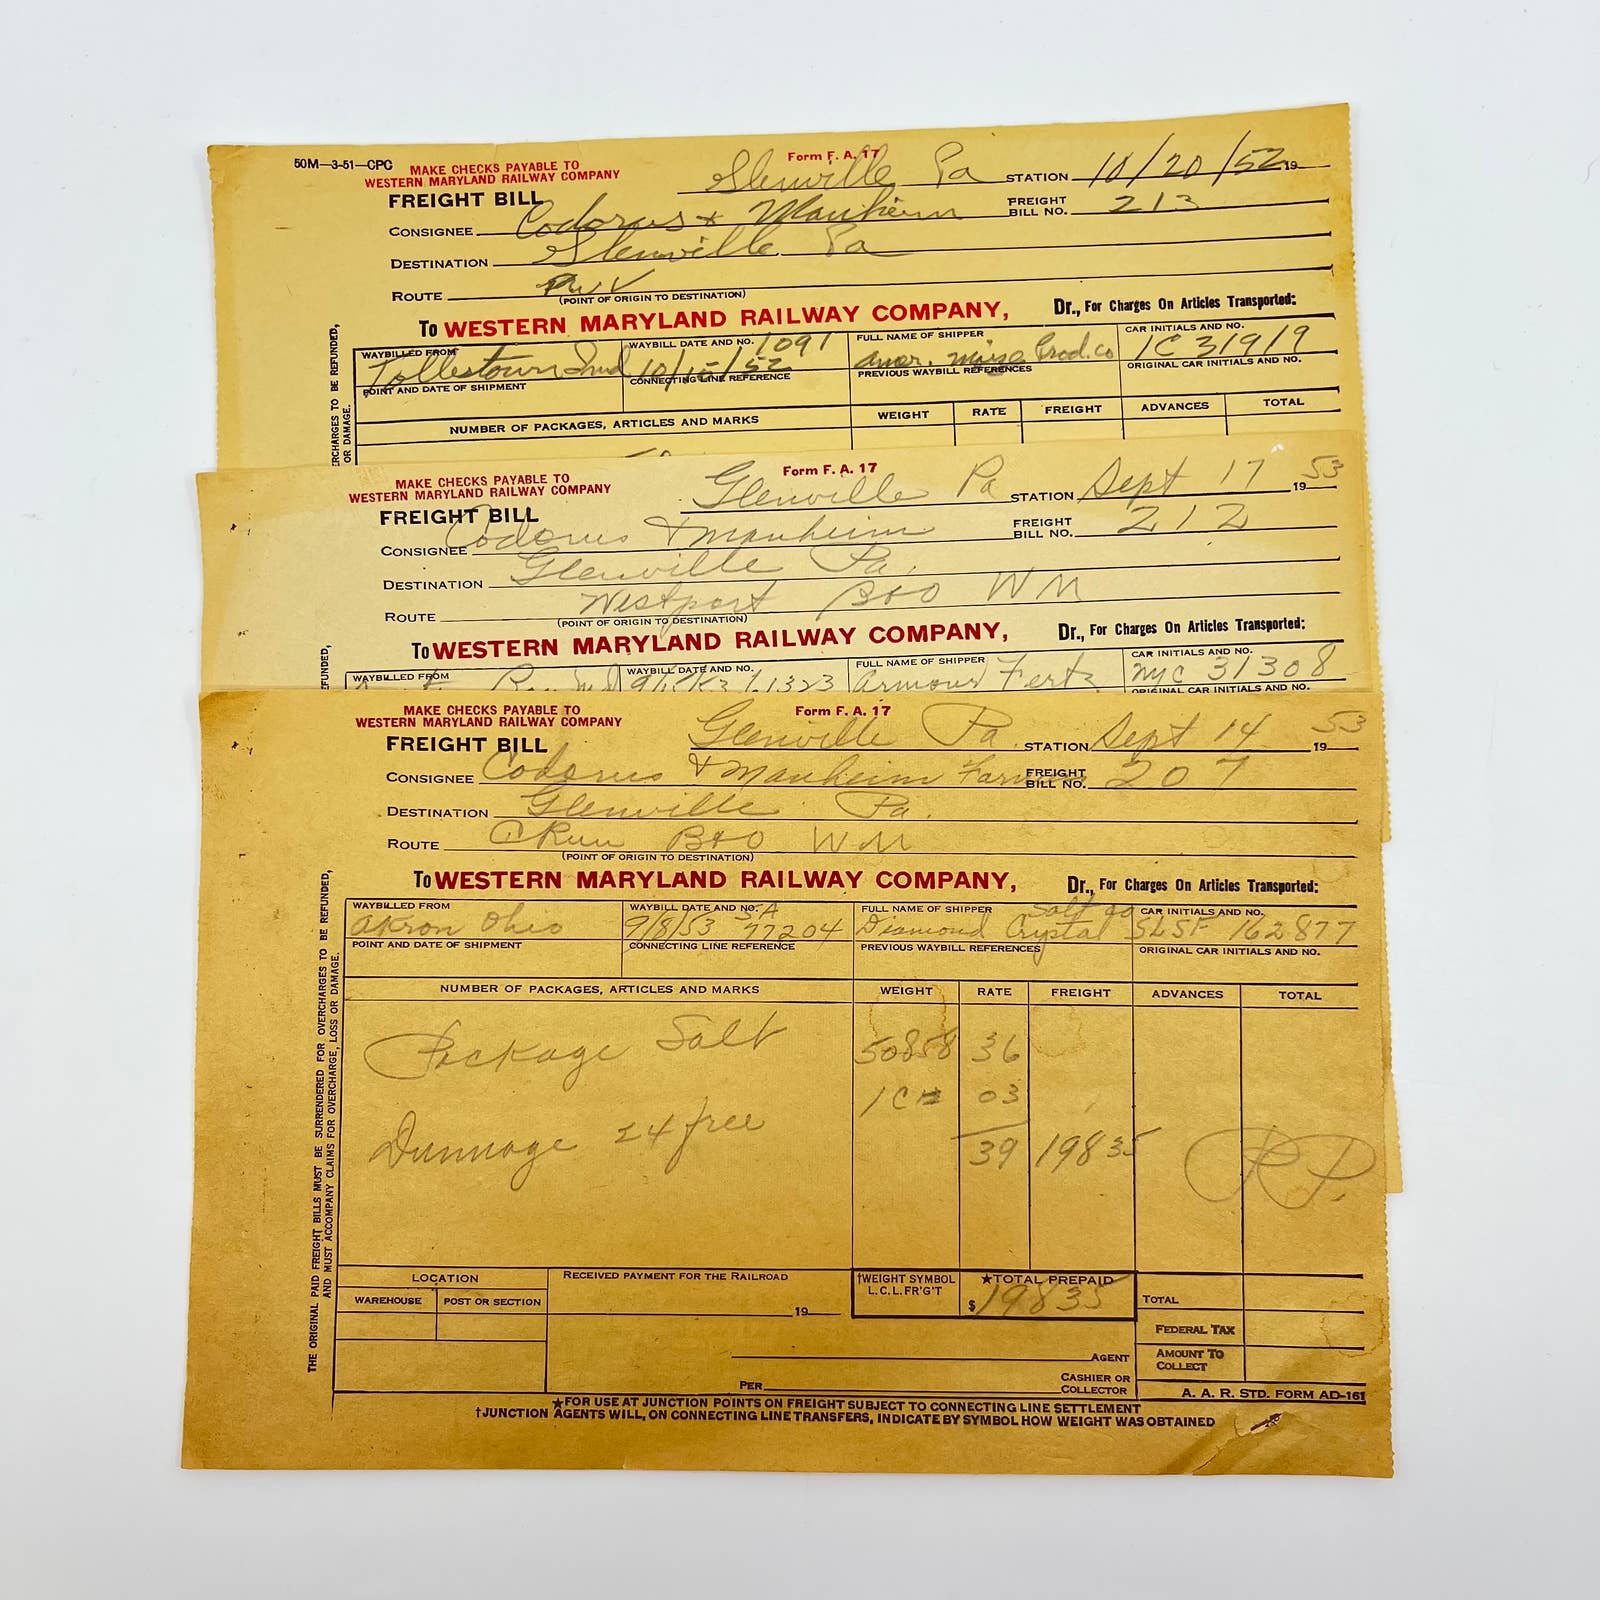 50M—3-51—CPC
MAKE CHECKS PAYABLE TO
WESTERN MARYLAND RAILWAY COMPANY
Form F. A. 17
Glenville Pa STATION 10/20/52 19
FREIGHT BILL
FREIGHT BILL NO. 213
CONSIGNEE Codorus & Manheim
DESTINATION Glenville Pa
ROUTE
(POINT OF ORIGIN TO DESTINATION)
To WESTERN MARYLAND RAILWAY COMPANY, Dr., For Charges On Articles Transported:
WAYBILLED FROM Tollestown Ind
WAYBILL DATE AND NO. 1091 10/15/52
FULL NAME OF SHIPPER Amer. Maize Prod. Co
CAR INITIALS AND NO. IC 31919
POINT AND DATE OF SHIPMENT
CONNECTING LINE REFERENCE
PREVIOUS WAYBILL REFERENCES
ORIGINAL CAR INITIALS AND NO.
NUMBER OF PACKAGES, ARTICLES AND MARKS WEIGHT RATE FREIGHT ADVANCES TOTAL
ERCHARGES TO BE REFUNDED,
OR DAMAGE.
MAKE CHECKS PAYABLE TO
WESTERN MARYLAND RAILWAY COMPANY
Form F. A. 17
Glenville Pa STATION Sept 17 19 53
FREIGHT BILL
FREIGHT BILL NO. 212
CONSIGNEE Codorus & Manheim
DESTINATION Glenville Pa.
ROUTE Westport B&O WM
(POINT OF ORIGIN TO DESTINATION)
To WESTERN MARYLAND RAILWAY COMPANY, Dr., For Charges On Articles Transported:
WAYBILLED FROM
WAYBILL DATE AND NO.
FULL NAME OF SHIPPER Armour Fertz
CAR INITIALS AND NO. NYC 31308
ORIGINAL CAR INITIALS AND NO.
FUNDED,
MAKE CHECKS PAYABLE TO
WESTERN MARYLAND RAILWAY COMPANY
Form F. A. 17
Glenville Pa. STATION Sept 14 19 53
FREIGHT BILL
FREIGHT BILL NO. 207
CONSIGNEE Codorus & Manheim Farm
DESTINATION Glenville Pa.
ROUTE C Run B&O WM
(POINT OF ORIGIN TO DESTINATION)
To WESTERN MARYLAND RAILWAY COMPANY, Dr., For Charges On Articles Transported:
WAYBILLED FROM Akron Ohio
WAYBILL DATE AND NO. 9/8/53 SA 77204
FULL NAME OF SHIPPER Diamond Crystal Salt Co
CAR INITIALS AND NO. SLSF 162877
POINT AND DATE OF SHIPMENT
CONNECTING LINE REFERENCE
PREVIOUS WAYBILL REFERENCES
ORIGINAL CAR INITIALS AND NO.
NUMBER OF PACKAGES, ARTICLES AND MARKS WEIGHT RATE FREIGHT ADVANCES TOTAL
Package Salt 50858 36
03
Dunnage 24 free
39 198 35
PP.
THE ORIGINAL PAID FREIGHT BILLS MUST BE SURRENDERED FOR OVERCHARGES TO BE REFUNDED,
AND MUST ACCOMPANY CLAIMS FOR OVERCHARGE, LOSS OR DAMAGE.
LOCATION
WAREHOUSE POST OR SECTION
RECEIVED PAYMENT FOR THE RAILROAD
19
†WEIGHT SYMBOL
L.C.L. FR'G'T
★TOTAL PREPAID
$198 35
TOTAL
FEDERAL TAX
AMOUNT TO COLLECT
AGENT
PER CASHIER OR COLLECTOR
A. A. R. STD. FORM AD-161
★FOR USE AT JUNCTION POINTS ON FREIGHT SUBJECT TO CONNECTING LINE SETTLEMENT
†JUNCTION AGENTS WILL, ON CONNECTING LINE TRANSFERS, INDICATE BY SYMBOL HOW WEIGHT WAS OBTAINED